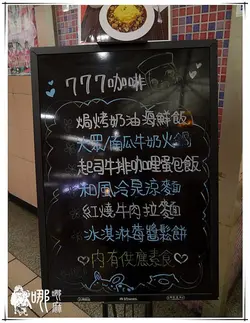 777咖啡
焗烤奶油海鮮飯
大眾南瓜牛奶火鍋
起司牛排咖哩蛋包飯
和風冷泉涼麵
紅燒牛肉拉麵
冰淇淋莓醬鬆餅
♡內有供應素食♡
哪